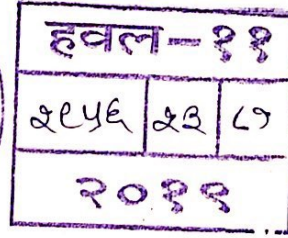 हवल-११
२९५६ २३ ८७
२०१९